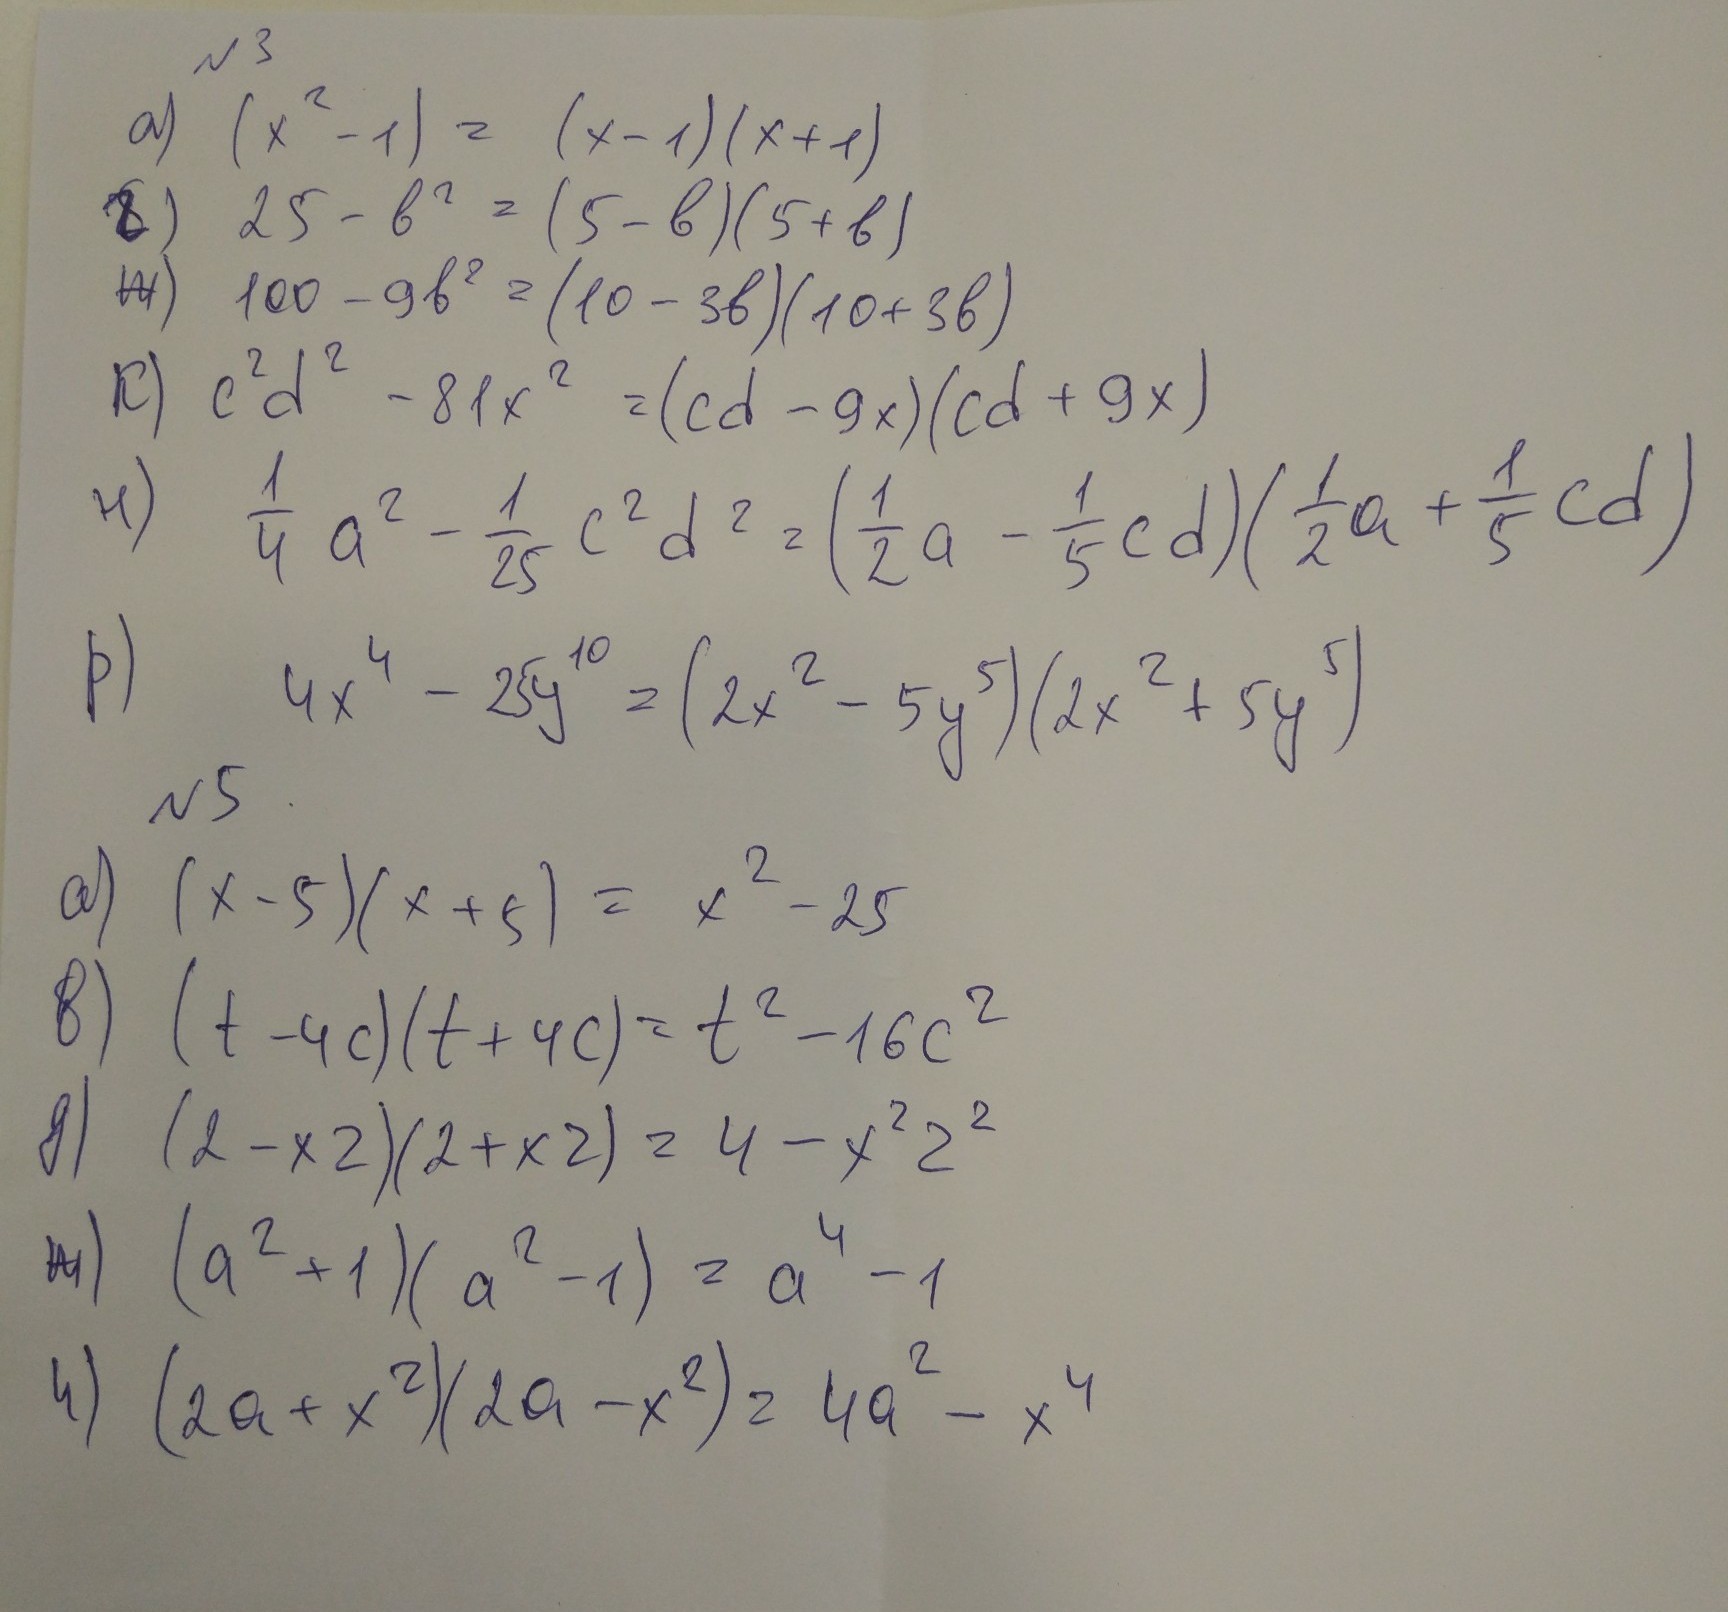 №3
а) (x² - 1) = (x - 1)(x + 1)
б) 25 - b² = (5 - b)(5 + b)
ж) 100 - 9b² = (10 - 3b)(10 + 3b)
к) c²d² - 81x² = (cd - 9x)(cd + 9x)
н) 1/4 a² - 1/25 c²d² = (1/2 a - 1/5 cd)(1/2 a + 1/5 cd)
р) 4x⁴ - 25y¹⁰ = (2x² - 5y⁵)(2x² + 5y⁵)
№5
а) (x - 5)(x + 5) = x² - 25
в) (t - 4c)(t + 4c) = t² - 16c²
д) (2 - xz)(2 + xz) = 4 - x²z²
ж) (a² + 1)(a² - 1) = a⁴ - 1
и) (2a + x²)(2a - x²) = 4a² - x⁴